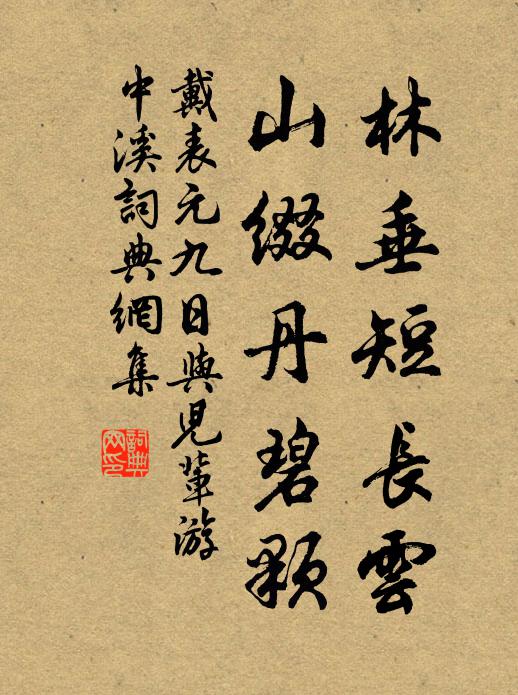 林垂短長雲
山綴丹碧顆
戴表元九日與兒輩游
中溪詞典網集
詞典
网印